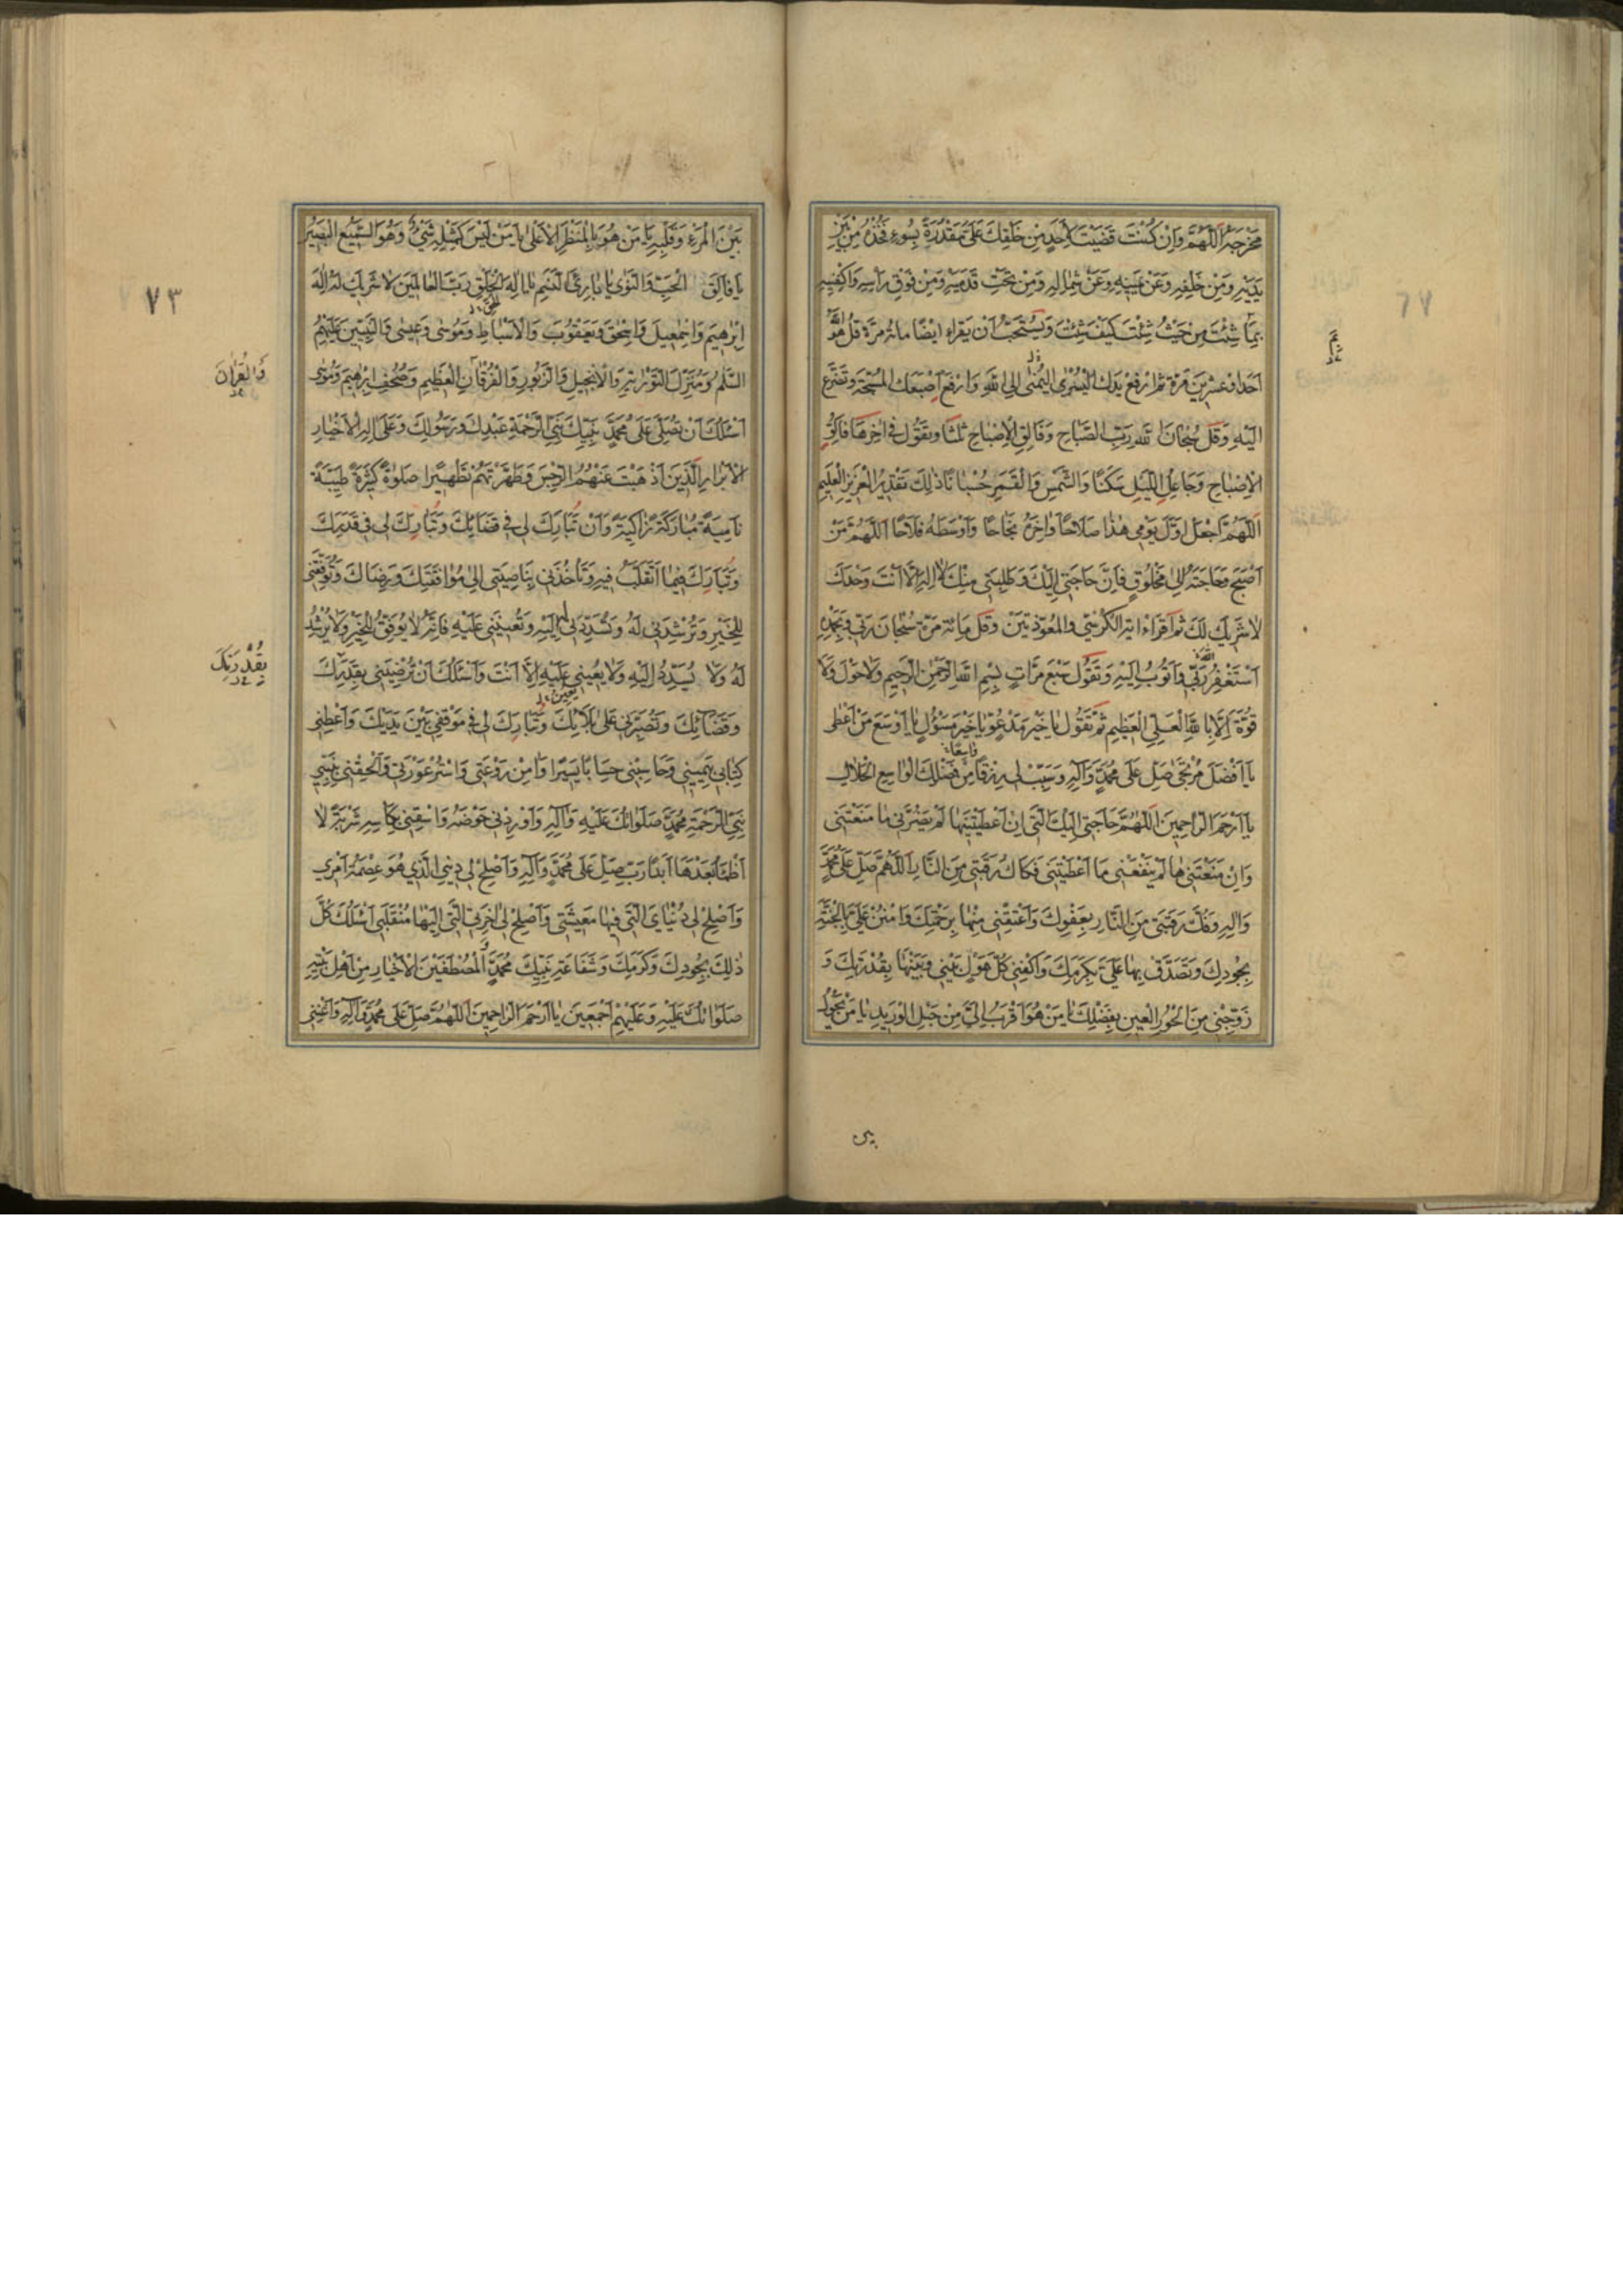 مَخْرَجَهُ اَللّٰهُمَّ وَاِنْ كُنْتَ قَضَيْتَ لِاَحَدٍ مِنْ خَلْقِكَ عَلَىَّ مَقْدُرَةً بِسُوءٍ فَخُذْهُ مِنْ بَيْنِ
يَدَيْهِ وَمِنْ خَلْفِهِ وَعَنْ يَمِينِهِ وَعَنْ شِمَالِهِ وَمِنْ تَحْتِ قَدَمَيْهِ وَمِنْ فَوْقِ رَأْسِهِ وَاكْفِنِيهِ
بِمَا شِئْتَ مِنْ حَيْثُ شِئْتَ كَيْفَ شِئْتَ وَيُسْتَحَبُّ اَنْ يَقْرَاءَ ايْضًا مائة مَرَّةٍ قُلْ هُوَ اللّٰهُ
اَحَد وعشرين مَرَّة ثم ارْفَعْ يَدَكَ الْيُسْرٰى الْيُمْنٰى اِلَى اللّٰهِ وَارْفَعْ اِصْبَعَكَ الْمُسَبِّحَةَ وَتَضَرَّعْ
اِلَيْهِ وَقُلْ سُبْحَانَ اللّٰهِ رَبِّ الصَّبَاحِ وَفَالِقِ الْاِصْبَاحِ ثلثا وَيَقُولُ فِى اٰخِرِهَا فَالِقِ
الْاِصْبَاحِ وَجَاعِلِ اللَّيْلِ سَكَنًا وَالشَّمْسِ وَالْقَمَرِ حُسْبَانًا ذٰلِكَ تَقْدِيرُ الْعَزِيزِ الْعَلِيمِ
اَللّٰهُمَّ اجْعَلْ اَوَّلَ يَوْمِي هٰذَا صَلَاحًا وَاٰخِرَهُ نَجَاحًا وَاَوْسَطَهُ فَلَاحًا اَللّٰهُمَّ مَنْ
اَصْبَحَ وَحَاجَتُهُ اِلٰى مَخْلُوقٍ فَاِنَّ حَاجَتِى اِلَيْكَ وَطَلِبَتِى مِنْكَ لَا اِلٰهَ اِلَّا اَنْتَ وَحْدَكَ
لَا شَرِيكَ لَكَ ثُمَّ اقْرَاء اٰية الْكُرْسِيّ وَالْمُعَوَّذَتَيْنِ وَقُلْ مِائَةَ مَرَّةٍ سُبْحَانَ رَبِّىَ وَبِحَمْدِهِ
اَسْتَغْفِرُ اللّٰهَ رَبِّى وَاَتُوبُ اِلَيْهِ وَتَقُولُ سَبْعَ مَرَّاتٍ بِسْمِ اللّٰهِ الرَّحْمٰنِ الرَّحِيمِ وَلَا حَوْلَ وَلَا
قُوَّةَ اِلَّا بِاللّٰهِ الْعَلِيِّ الْعَظِيمِ ثُمَّ تَقُولُ يَا خَيْرَ مَدْعُوٍّ يَا خَيْرَ مَسْؤُلٍ يَا اَوْسَعَ مَنْ اَعْطٰى
يَا اَفْضَلَ مُرْتَجًى صَلِّ عَلٰى مُحَمَّدٍ وَاٰلِهِ وَسَبِّبْ لِى رِزْقًا وَاسِعًا مِنْ فَضْلِكَ الْوَاسِعِ الْحَلَالِ
يَا اَرْحَمَ الرَّاحِمِينَ اَللّٰهُمَّ حَاجَتِى اِلَيْكَ الَّتِى اِنْ اَعْطَيْتَنِيهَا لَمْ يَضُرَّنِى مَا مَنَعْتَنِى
وَاِنْ مَنَعْتَنِيهَا لَمْ يَنْفَعْنِى مَا اَعْطَيْتَنِى فَكَاكُ رَقَبَتِى مِنَ النَّارِ اَللّٰهُمَّ صَلِّ عَلٰى مُحَمَّدٍ
وَاٰلِهِ وَفُكَّ رَقَبَتِى مِنَ النَّارِ بِعَفْوِكَ وَاَعْتِقْنِى مِنْهَا بِرَحْمَتِكَ وَامْنُنْ عَلَىَّ بِالْجَنَّةِ
بِجُودِكَ وَتَصَدَّقْ بِهَا عَلَىَّ بِكَرَمِكَ وَاكْفِنِى كُلَّ هَوْلٍ بَيْنِى وَبَيْنَهَا بِقُدْرَتِكَ وَ
زَوِّجْنِى مِنَ الْحُورِ الْعِينِ بِفَضْلِكَ يَا مَنْ هُوَ اَقْرَبُ اِلَىَّ مِنْ حَبْلِ الْوَرِيدِ يَا مَنْ يَحُولُ
بين
٧٣
بَيْنَ الْمَرْءِ وَقَلْبِهِ يَا مَنْ هُوَ بِالْمَنْظَرِ الْاَعْلٰى يَا مَنْ لَيْسَ كَمِثْلِهِ شَىْءٌ وَهُوَ السَّمِيعُ الْبَصِيرُ
يَا فَالِقَ الْحَبِّ وَالنَّوٰى يَا بَارِئَ النَّسَمِ يَا اِلٰهَ الْخَلْقِ رَبَّ الْعَالَمِينَ لَا شَرِيكَ لَهُ اِلٰهَ
اِبْرٰهِيمَ وَاِسْمٰعِيلَ وَاِسْحٰقَ وَيَعْقُوبَ وَالْاَسْبَاطِ وَمُوسٰى وَعِيسٰى وَالنَّبِيِّينَ عَلَيْهِمُ
السَّلٰمُ وَمُنْزِلَ التَّوْرٰيةِ وَالْاِنْجِيلِ وَالزَّبُورِ وَالْفُرْقَانِ الْعَظِيمِ وَصُحُفِ اِبْرٰهِيمَ وَمُوسٰى
وَالْقُرْاٰنَ
اَسْئَلُكَ اَنْ تُصَلِّىَ عَلٰى مُحَمَّدٍ نَبِيِّكَ نَبِىِّ الرَّحْمَةِ عَبْدِكَ وَرَسُولِكَ وَعَلٰى اٰلِهِ الْاَخْيَارِ
الْاَبْرَارِ الَّذِينَ اَذْهَبْتَ عَنْهُمُ الرِّجْسَ وَطَهَّرْتَهُمْ تَطْهِيرًا صَلٰوةً كَثِيرَةً طَيِّبَةً
نَامِيَةً مُبَارَكَةً زَاكِيَةً وَاَنْ تُبَارِكَ لِى فِى قَضَائِكَ وَتُبَارِكَ لِى فِى قَدَرِكَ
وَتُبَارِكَ فِيمَا اَتَقَلَّبُ فِيهِ وَتَأْخُذَنِى بِنَاصِيَتِى اِلٰى مُوَافَقَتِكَ وَرِضَاكَ وَتُوَفِّقَنِى
لِلْخَيْرِ وَتُرْشِدَنِى لَهُ وَتُسَدِّدَنِى اِلَيْهِ وَتُعِينَنِى عَلَيْهِ فَاِنَّهُ لَا يُوَفِّقُ لِلْخَيْرِ وَلَا يُرْشِدُ
لَهُ وَلَا يُسَدِّدُ اِلَيْهِ وَلَا يُعِينُنِى عَلَيْهِ اِلَّا اَنْتَ وَاَسْئَلُكَ اَنْ تُرْضِيَنِى بِقَدَرِكَ
بِقُدْرَتِكَ
وَقَضَائِكَ وَتُصَبِّرَنِى عَلٰى بَلَائِكَ وَتُبَارِكَ لِى فِى مَوْقِفِى بَيْنَ يَدَيْكَ وَاَعْطِنِى
كِتَابِى بِيَمِينِى وَحَاسِبْنِى حِسَابًا يَسِيرًا وَاٰمِنْ رَوْعَتِى وَاسْتُرْ عَوْرَتِى وَاَلْحِقْنِى بِنَبِيِّى
نَبِىِّ الرَّحْمَةِ مُحَمَّدٍ صَلَوَاتُكَ عَلَيْهِ وَاٰلِهِ وَاَوْرِدْنِى حَوْضَهُ وَاسْقِنِى بِكَأْسِهِ شَرْبَةً لَا
اَظْمَأُ بَعْدَهَا اَبَدًا رَبِّ صَلِّ عَلٰى مُحَمَّدٍ وَاٰلِهِ وَاَصْلِحْ لِى دِينِى الَّذِى هُوَ عِصْمَةُ اَمْرِى
وَاَصْلِحْ لِى دُنْيَاىَ الَّتِى فِيهَا مَعِيشَتِى وَاَصْلِحْ لِى اٰخِرَتِى الَّتِى اِلَيْهَا مُنْقَلَبِى اَسْئَلُكَ كُلَّ
ذٰلِكَ بِجُودِكَ وَكَرَمِكَ وَشَفَاعَةِ نَبِيِّكَ مُحَمَّدٍ الْمُصْطَفَيْنَ الْاَخْيَارِ مِنْ اَهْلِ بَيْتِهِ
صَلَوَاتُكَ عَلَيْهِ وَعَلَيْهِمْ اَجْمَعِينَ يَا اَرْحَمَ الرَّاحِمِينَ اَللّٰهُمَّ صَلِّ عَلٰى مُحَمَّدٍ وَاٰلِهِ وَاَغْنِنِى